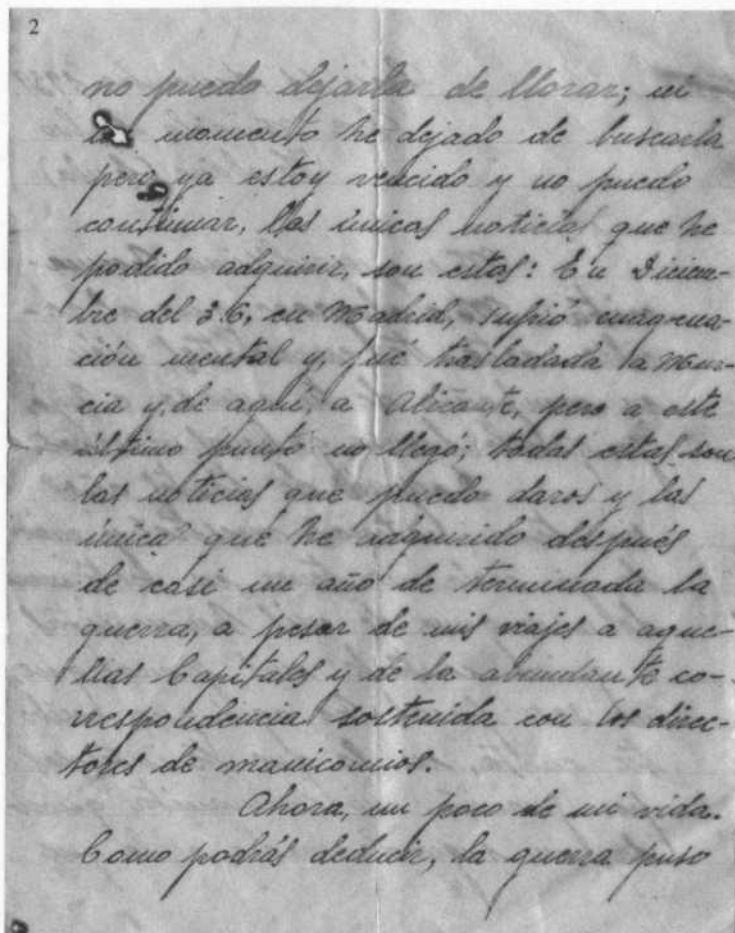 2
no puedo dejarla de llorar; ni
un momento he dejado de buscarla
pero ya estoy vencido y no puedo
continuar, las únicas noticias que he
podido adquirir, son estas: En Diciem-
bre del 36, en Madrid, sufrió enagena-
ción mental y, fué trasladada a Mur-
cia y, de aquí, a Alicante, pero a este
último punto no llegó; todas estas son
las noticias que puedo daros y las
única que he adquirido después
de casi un año de terminada la
guerra, a pesar de mis viajes a aque-
llas Capitales y de la abundante co-
rrespondencia sostenida con los direc-
tores de manicomios.
Ahora, un poco de mi vida.
Como podrás deducir, la guerra puso